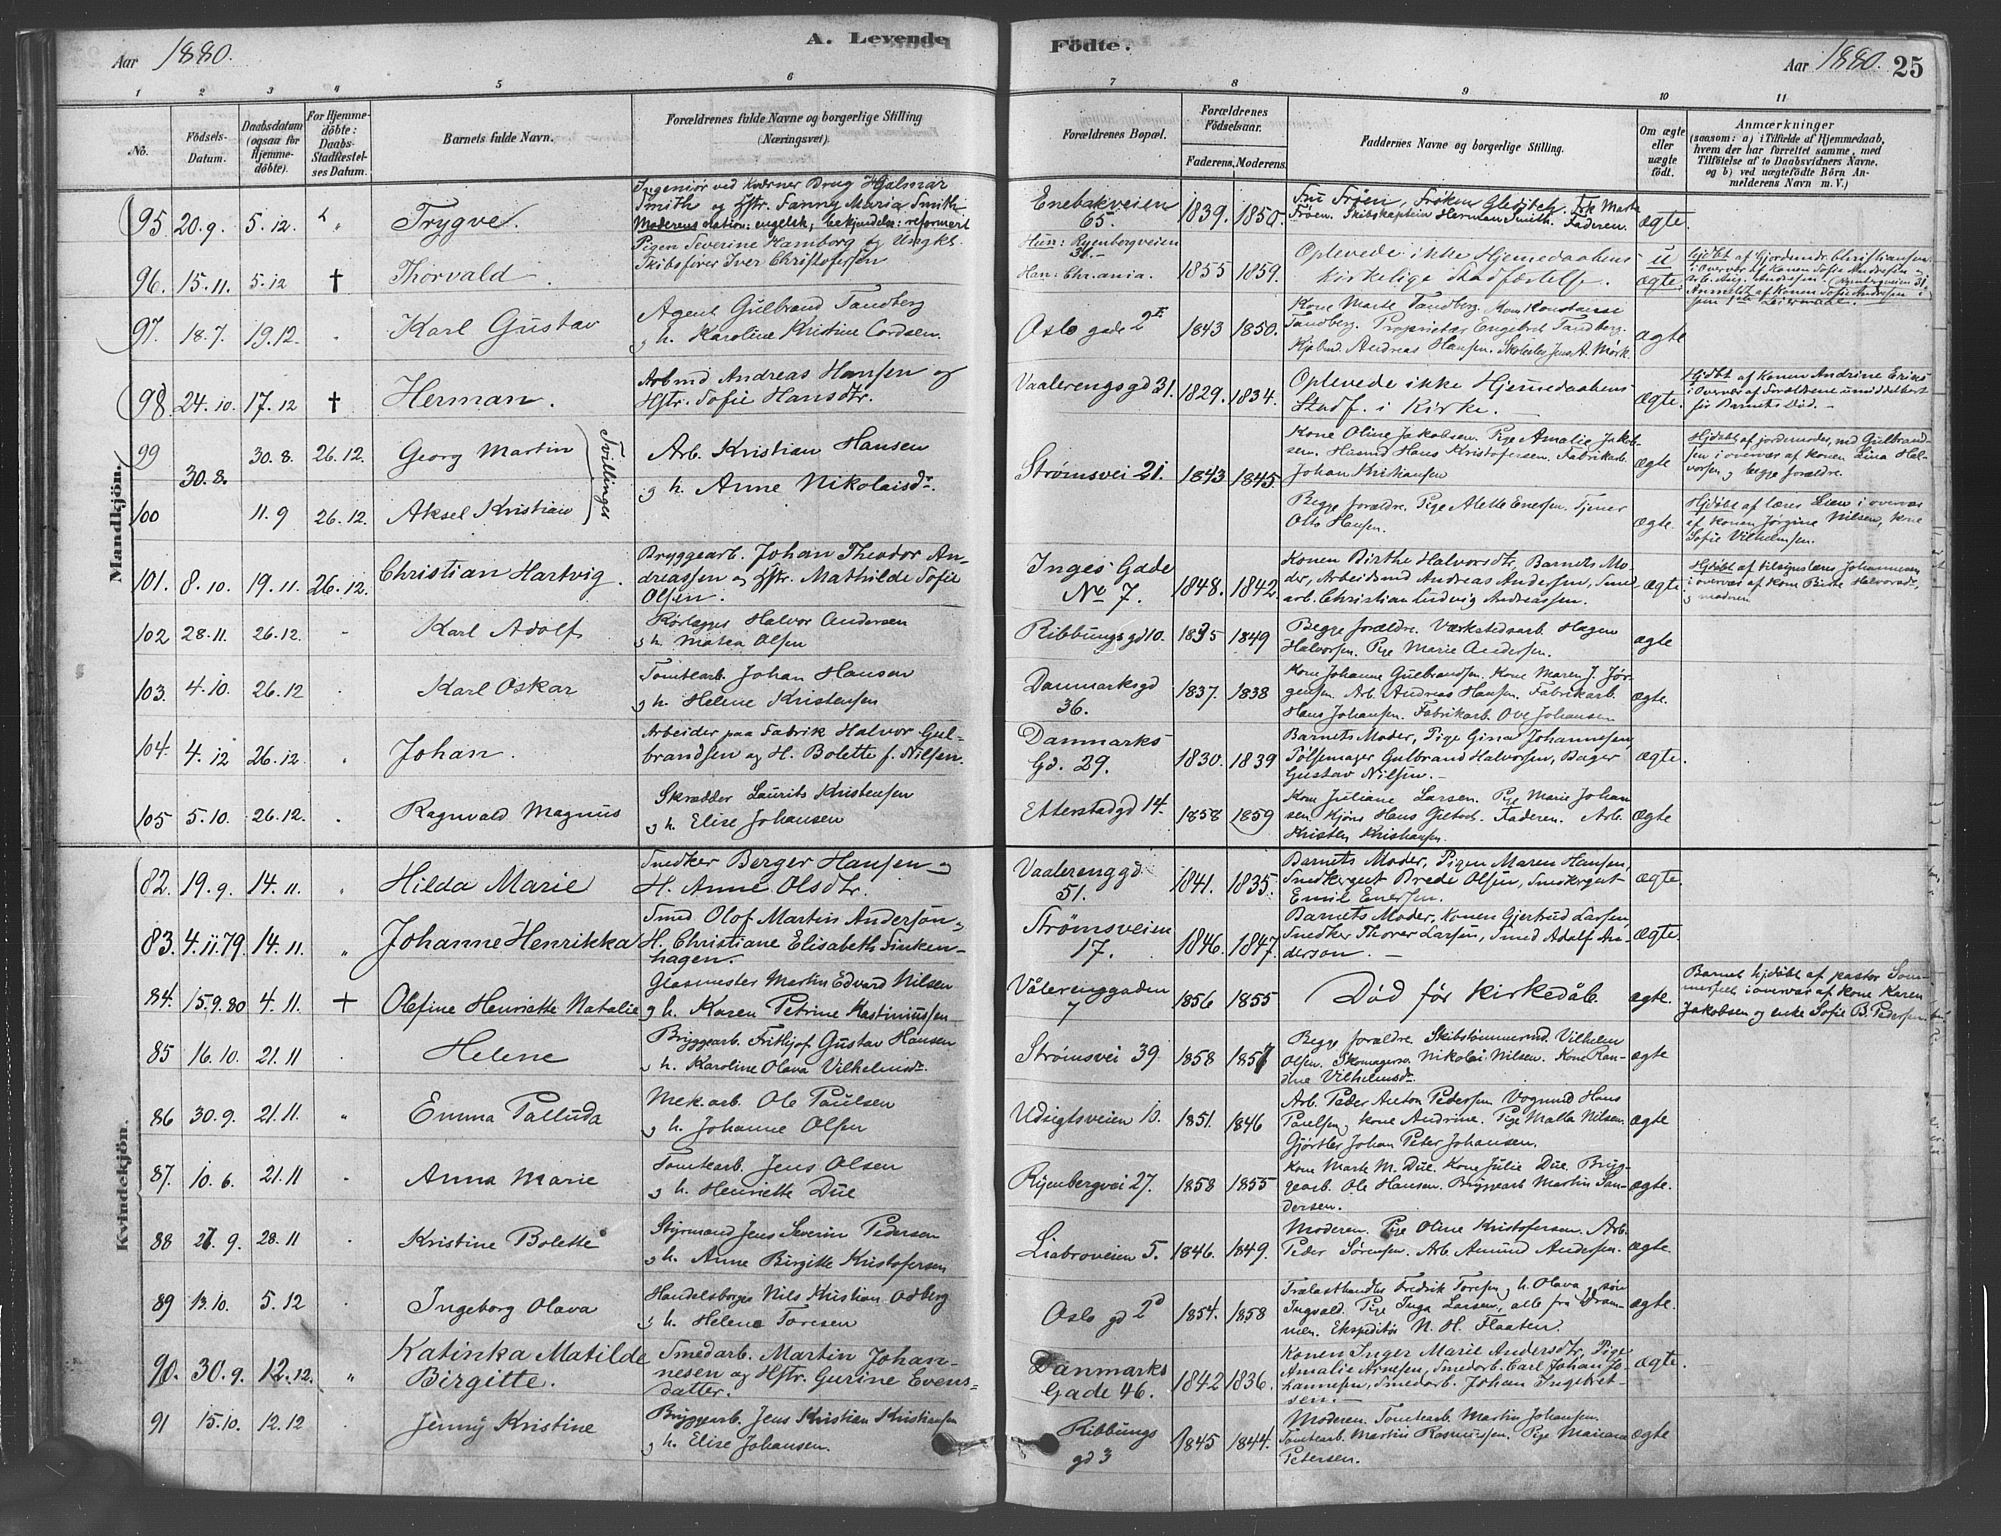 Aar 1880. A. Levende Födte. Aar 1880. 25
1 2 3 4 5 6 7 8 9 10 11
No.
Födsels-Datum.
Daabsdatum (ogsaa for Hjemme-döbte).
For Hjemme-döbte: Daabs-Stadfæstel-ses Datum.
Barnets fulde Navn.
Forældrenes fulde Navne og borgerlige Stilling (Næringsvei).
Forældrenes Bopæl.
Forældrenes Födselsaar.
Faderens. Moderens.
Faddernes Navne og borgerlige Stilling.
Om ægte eller uægte födt.
Anmærkninger
(saasom: a) i Tilfælde af Hjemmedaab,
hvem der har forrettet samme, med
Tilföielse af to Daabsvidners Navne.
og b) ved uægtefödte Börn An-
melderens Navn m. V.)
Mandkjön.
95 20.9. 5.12. " Trygve.
Ingeniør ved Kværner Brug Hjalmar
Smith og Hstr. Fanny Maria Smith
Moderens nation: engelsk, bekjendelse: reformert
Enebakveien
65.
1839. 1850.
Fru Frøen, Frøken Gleditch, Frk Marthe
Frøen. Skibskaptein Herman Smith. Faderen.
ægte.
96. 15.11. 5.12 † Thorvald.
Pigen Severine Hamborg og Ungkl.
Skibsfører Iver Christofersen
Hun: Ryenbergveien
31.
Han: Chrania.
1855 1859.
Oplevede ikke Hjemmedaabens
kirkelige Stadfæstelse.
u
ægte.
Hjdøbt af Gjordemdr. Christiansen
i Overvær af Konen Sofie Andresen
Anmeldt af Konen Sofie Andersen
97. 18.7. 19.12. " Karl Gustav
Agent Gulbrand Tandberg
og h. Karoline Kristine Cordsen.
Oslo gade 2
1843 1850.
Kone Marte Tandberg. Kone Konstanse
Tandberg. Proprietær Engebret Tandberg.
Kjøbmd. Andreas Hansen. Skolebest. Jens A. Mørk.
ægte
98. 24.10. 17.12 † Herman.
Arbmd Andreas Hansen og
Hstr. Sofie Hansdtr.
Vaalerengsgd 31.
1829. 1834.
Oplevede ikke Hjemmedaabens
Stadf. i Kirke.
ægte.
Hjdøbt af Konen Andrine Eriks
i Overvær af Forældrene umiddelbart
før Barnets Død.
99 30.8. 30.8. 26.12. Georg Martin
Tvillinger
Arb. Kristian Hansen
og h. Anne Nikolaisdr.
Strømsvei 21.
1843 1845.
Kone Oline Jakobsen. Pige Amalie Jakob-
sen. Husmd Hans Kristofersen. Fabrikarb.
Johan Kristiansen
ægte
Hjdøbt af jordemoder, md Gulbrand-
sen i overvær af konen Lina Hal-
vorsen og begge forældre.
100 11.9 26.12. Aksel Kristian
Begge forældre. Pige Alette Enersen. Tjener
Otto Hansen.
ægte.
Hjdøbt af lærer Lien i overvær
af konen Jørgine Nilsen, kone
Sofie Vilhelmsen.
101. 8.10. 19.11. 26.12. Christian Hartvig.
Bryggearb. Johan Theodor An-
dreassen og Hstr. Mathilde Sofie
Olsen.
Inges Gade
No 7.
1848. 1842.
Konen Birthe Halvorsdtr, Barnets Mo-
der, Arbeidsmd Andreas Andersen, Smed-
arb. Christian Ludvig Andreassen.
ægte.
Hjdøbt af tilsynslærer Johannesen
i overvær af kone Birthe Halvorsdr
og moderen
102 28.11. 26.12. " Karl Adolf
Halvor Andersen
og h. Matea Olsen
Ribbungsgd 10.
1835 1849
Begge forældre. Værkstedsarb. Hagen
Halvorsen. Pige Marie Andersen.
ægte
103. 4.10. 26.12 " Karl Oskar
Tomtearb. Johan Hansen
og h. Helene Kristensen
Danmarksgd
36.
1837. 1838
Kone Johanne Gulbrandsen. Kone Maren J. Jør-
gensen. Arb. Andreas Hansen. Fabrikarb.
Hans Johansen. Fabrikarb. Ove Johansen
ægte.
104. 4.12 26.12. " Johan.
Arbeider paa Fabrik Halvor Gul-
brandsen og H. Bolette f. Nilsen.
Danmarks
Gd. 29.
1830. 1839
Barnets Moder, Pige Gina Johannesen,
Pølsemager Gulbrand Halvorsen, Bager
Gustav Nilsen.
ægte.
105 5.10. 26.12. " Ragnvald Magnus
Skrædder Laurits Kristensen
og h. Elise Johansen
Etterstadgd 14.
1858 1859
Kone Juliane Larsen. Pige Marie Johan
sen. Hans Gietvol. Faderen. Arb.
Kristen Kristiansen.
ægte
Kvindekjön.
82. 19.9. 14.11. " Hilda Marie
Snedker Berger Hansen og
H. Anne Olsdtr.
Vaalerenggd
51.
1841. 1835.
Barnets Moder, Pigen Maren Hansen,
Snedkersvt Brede Olsen, Snedkersvt
Emil Enersen.
ægte.
83. 4.11.79. 14.11. " Johanne Henrikka
Smed Olof Martin Anderson,
H. Christiane Elisabeth Finken-
hagen.
Strømsveien
17.
1846. 1847.
Barnets Moder, Konen Gjertrud Larsen,
Snedker Thorer Larsen, Smed Adolf An-
derson.
ægte.
84. 15.9.80 4.11. † Olefine Henriette Natalie
Glasmester Martin Edvard Nilsen
og h. Karen Petrine Rastiniussen
Vålerenggaden
7
1856 1855
Död før kirkedåb.
ægte.
Barnet hjdøbt af pastor Som-
merfelt i overvær af kone Karen
Jakobsen og enke Sofie B. Pedersen.
85 16.10. 21.11 " Helene
Bryggearb. Frithjof Gustav Hansen
og h. Karoline Olava Vilhelmsdr.
Strømsvei 39
1858 1857
Begge forældre. Skibstømmermd Vilhelm
Olsen. Skomagersv. Nikolai Nilsen. Kone Ran-
dine Vilhelmsdr.
ægte
86 30.9. 21.11. " Emma Palluda
Mek. arb. Ole Paulsen
og h. Johanne Olsen
Udsigtsveien 10.
1851. 1846
Arb. Peder Anton Pedersen. Vognmd Hans
Paulsen, kone Andrine. Pige Malla Nilsen.
Gjørtler Johan Peter Johansen.
ægte
87. 10.6. 21.11 " Anna Marie
Tomtearb. Jens Olsen
og h. Henriette Due
Ryenbergvei 27.
1858 1855
Kone Marte M. Due. Kone Julie Due. Bryg-
gearb. Ole Hansen. Bryggearb. Martin San-
dersen.
ægte.
88 27.9. 28.11 " Kristine Bolette
Styrmand Jens Severin Pedersen
og h. Anne Birgitte Kristofersen
Liabroveien 5.
1846. 1849.
Moderen. Pige Oline Kristofersen. Arb.
Peder Sørensen. Arb. Amund Andersen.
ægte.
89 13.10. 5.12 " Ingeborg Olava
Handelsborger Nils Kristian Odberg
og h. Helene Toresen
Oslo gd 2
1854. 1858
Trælasthandler Fredrik Toresen, h. Olava, søn
Ingvald. Pige Inga Larsen, alle fra Dram-
men. Ekspeditør N. H. Flaaten.
ægte.
90. 30.9. 12.12. " Katinka Matilde
Birgitte.
Smedarb. Martin Johan-
nesen og Hstr. Gurine Evens-
datter.
Danmarks
Gade 46.
1842 1836.
Konen Inger Marie Andersdtr, Pige
Amalie Arnesen, Smedarb. Carl Johan Jo-
hannesen, Smedarb. Johan Ingebret-
sen.
ægte.
91 15.10. 12.12 " Jenny Kristine
Bryggearb. Jens Kristian Kristiansen
og h. Elise Johansen.
Ribbungs
gd 3
1845 1844.
Moderen. Tomtearb. Martin Johansen.
Tomtearb. Martin Rasmussen. Pige
Petersen.
ægte